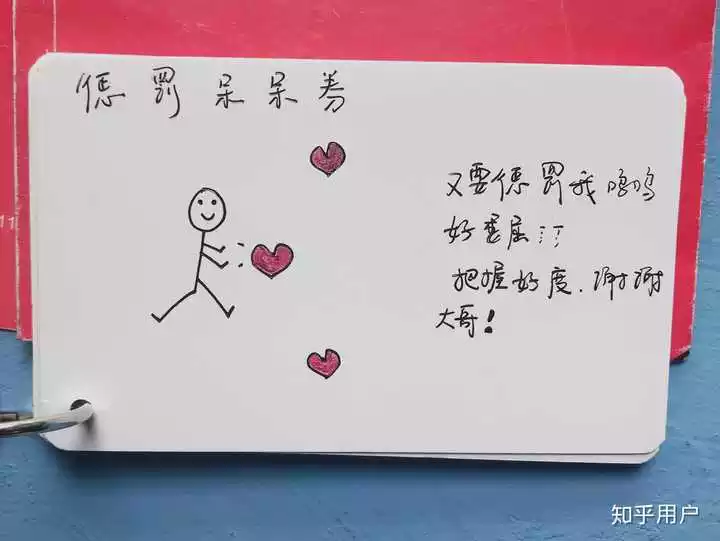 惩罚呆呆券
又要惩罚我呜呜
好委屈
把握好度.谢谢
大哥!
11
知乎用户